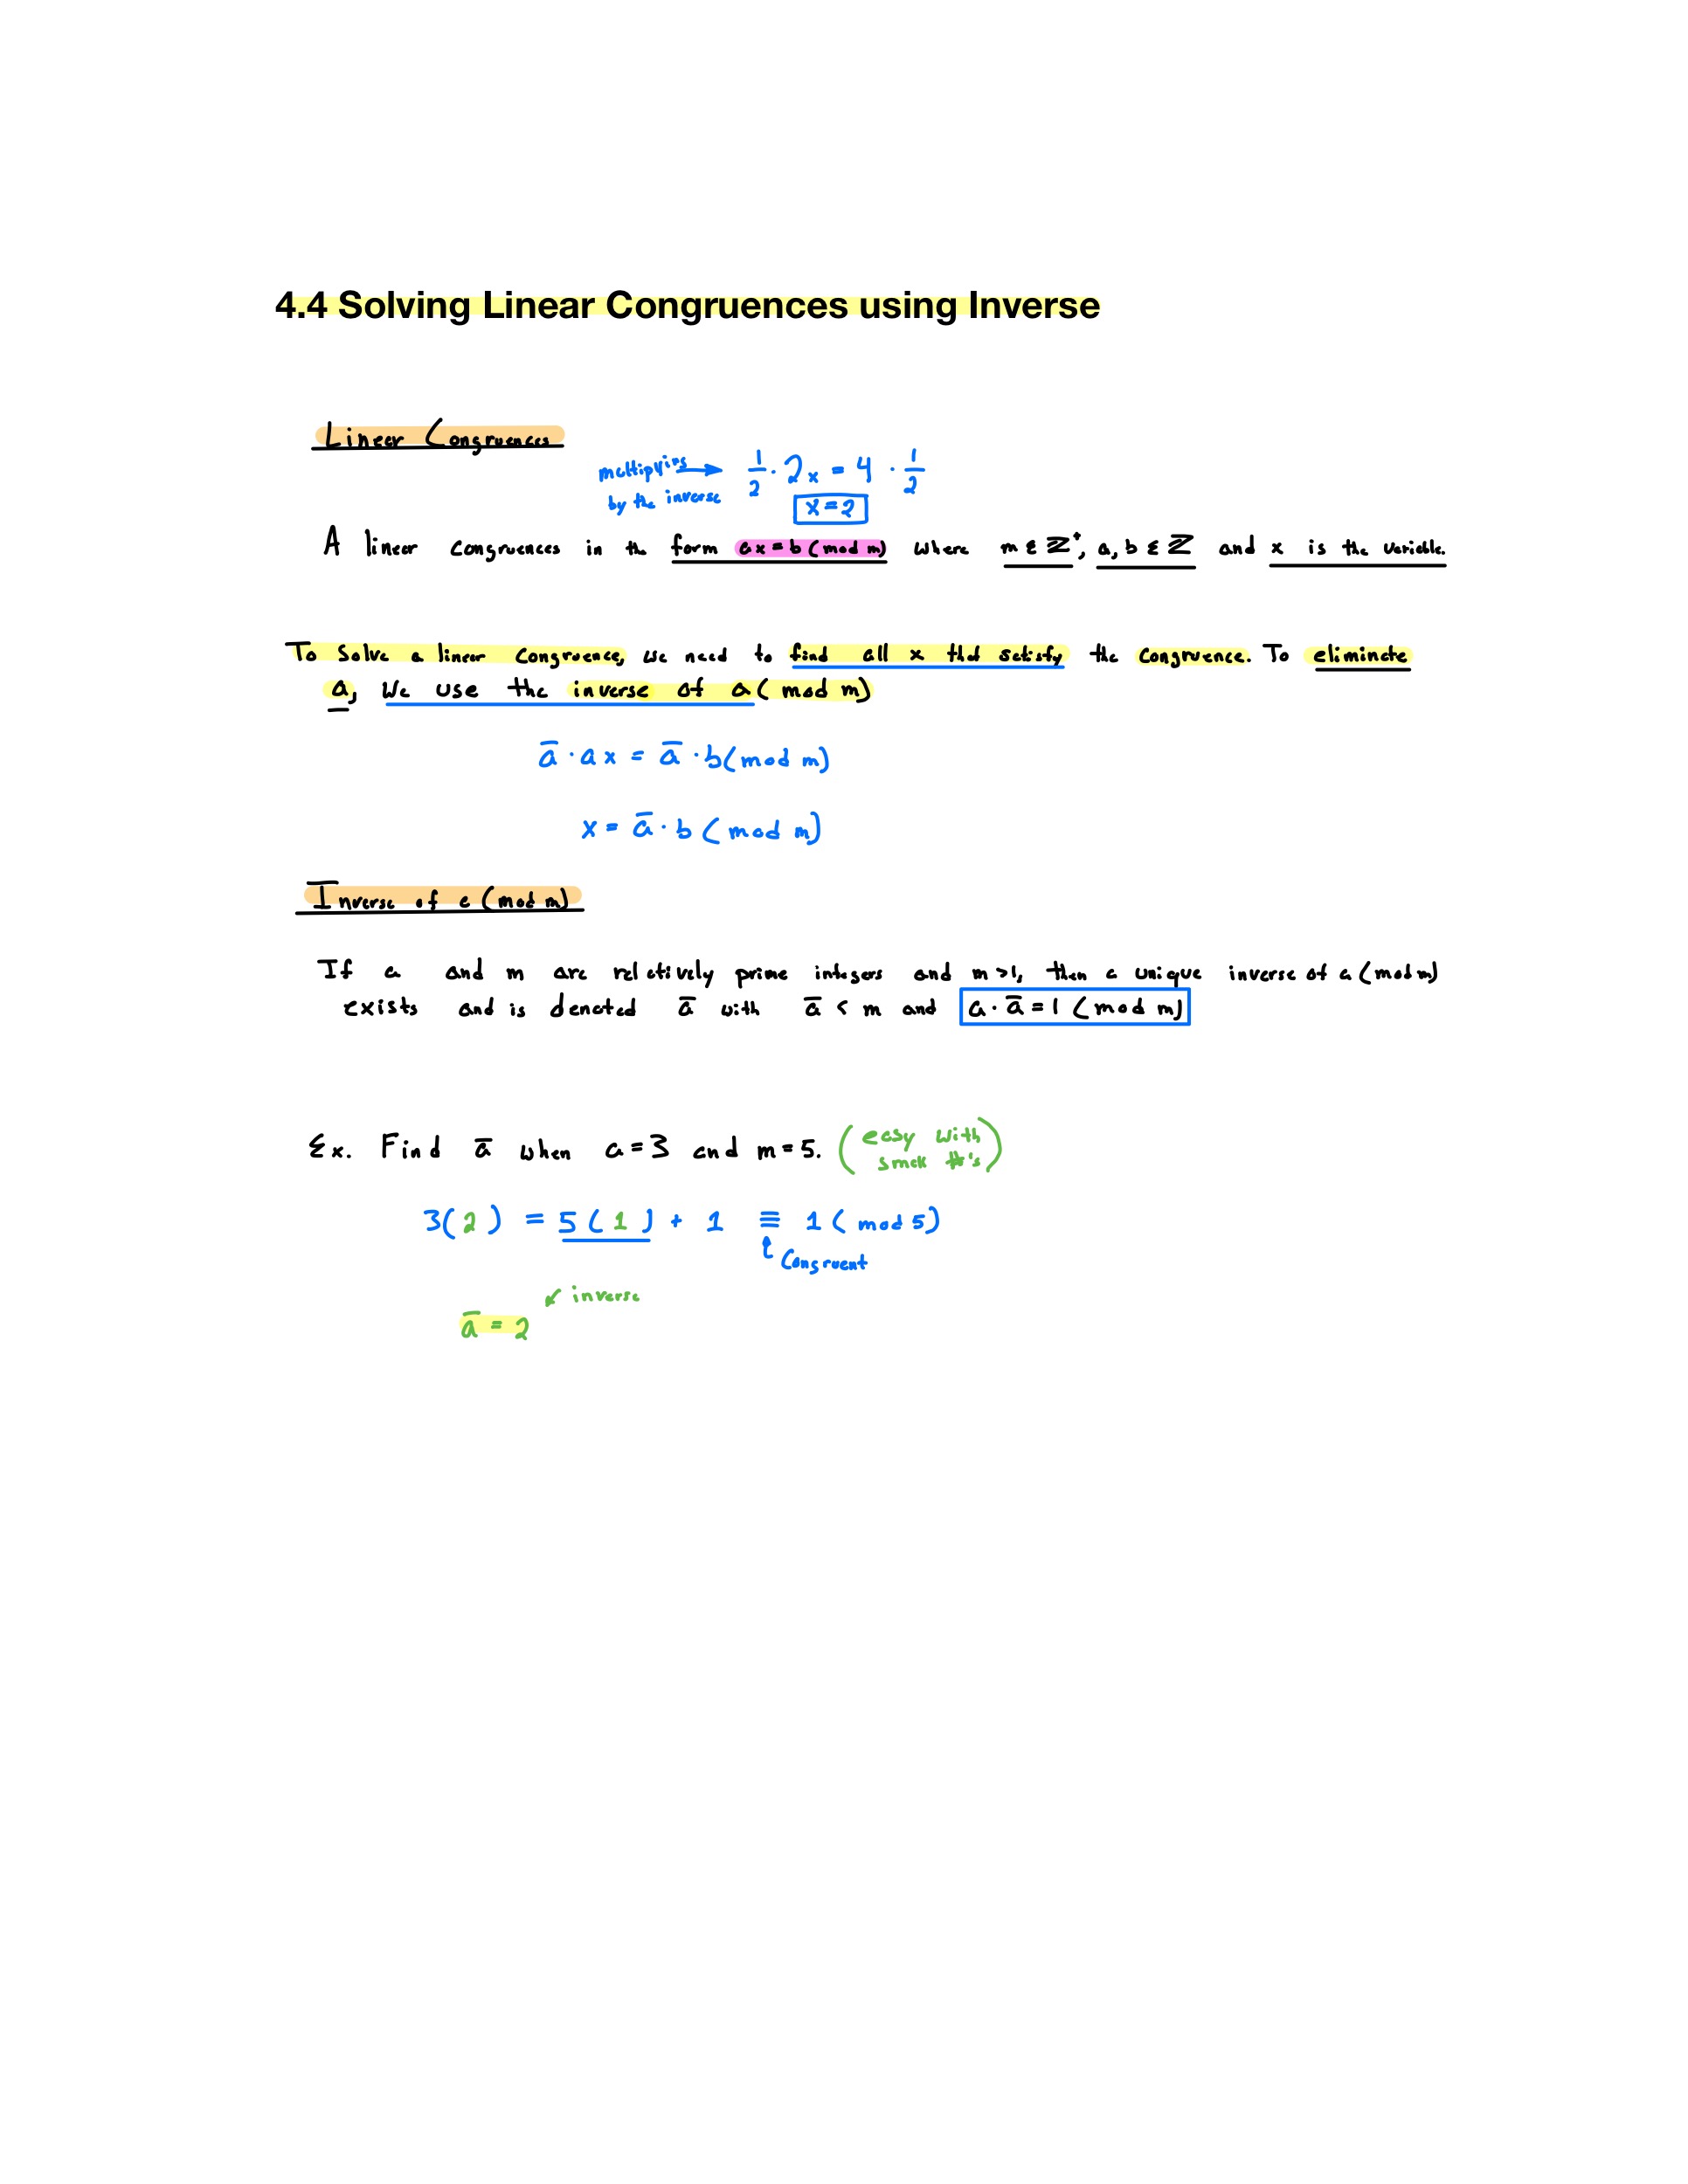 4.4 Solving Linear Congruences using Inverse
Linear Congruences
multiplying → 1/2 · 2x = 4 · 1/2
by the inverse
x = 2
A linear congruences in the form ax = b (mod m) where m ε ℤ⁺, a, b ε ℤ and x is the variable.
To solve a linear congruence, we need to find all x that satisfy the congruence. To eliminate
a, we use the inverse of a (mod m)
a̅ · ax = a̅ · b (mod m)
x = a̅ · b (mod m)
Inverse of a (mod m)
If a and m are relatively prime integers and m > 1, then a unique inverse of a (mod m)
exists and is denoted a̅ with a̅ < m and a · a̅ = 1 (mod m)
Ex. Find a̅ when a = 3 and m = 5. (easy with
small #'s)
3(2) = 5(1) + 1 ≡ 1 (mod 5)
↑ Congruent
↙ inverse
a̅ = 2